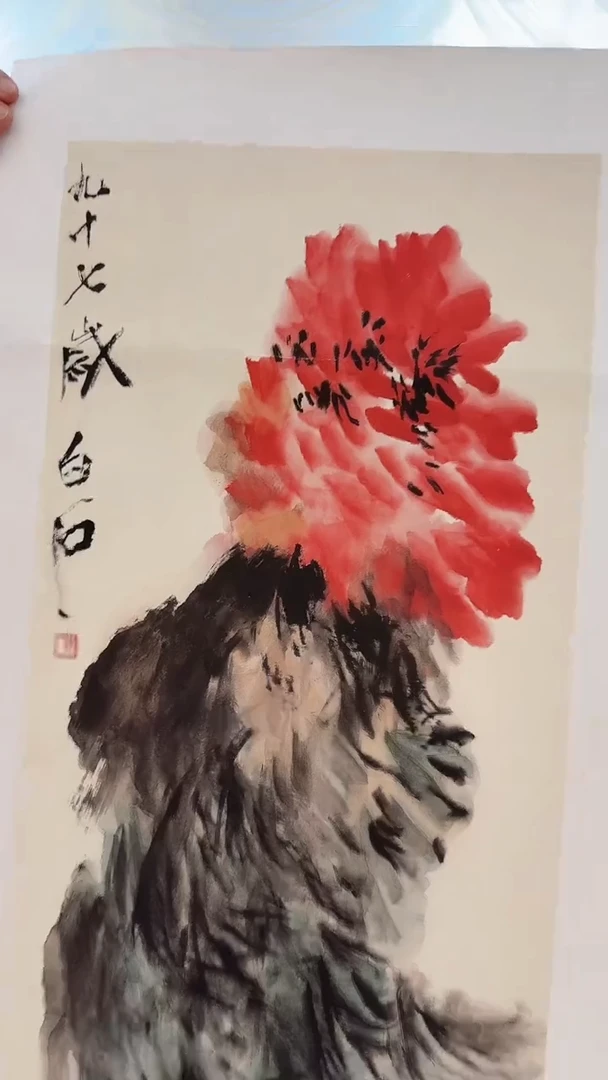 九十七歲白石